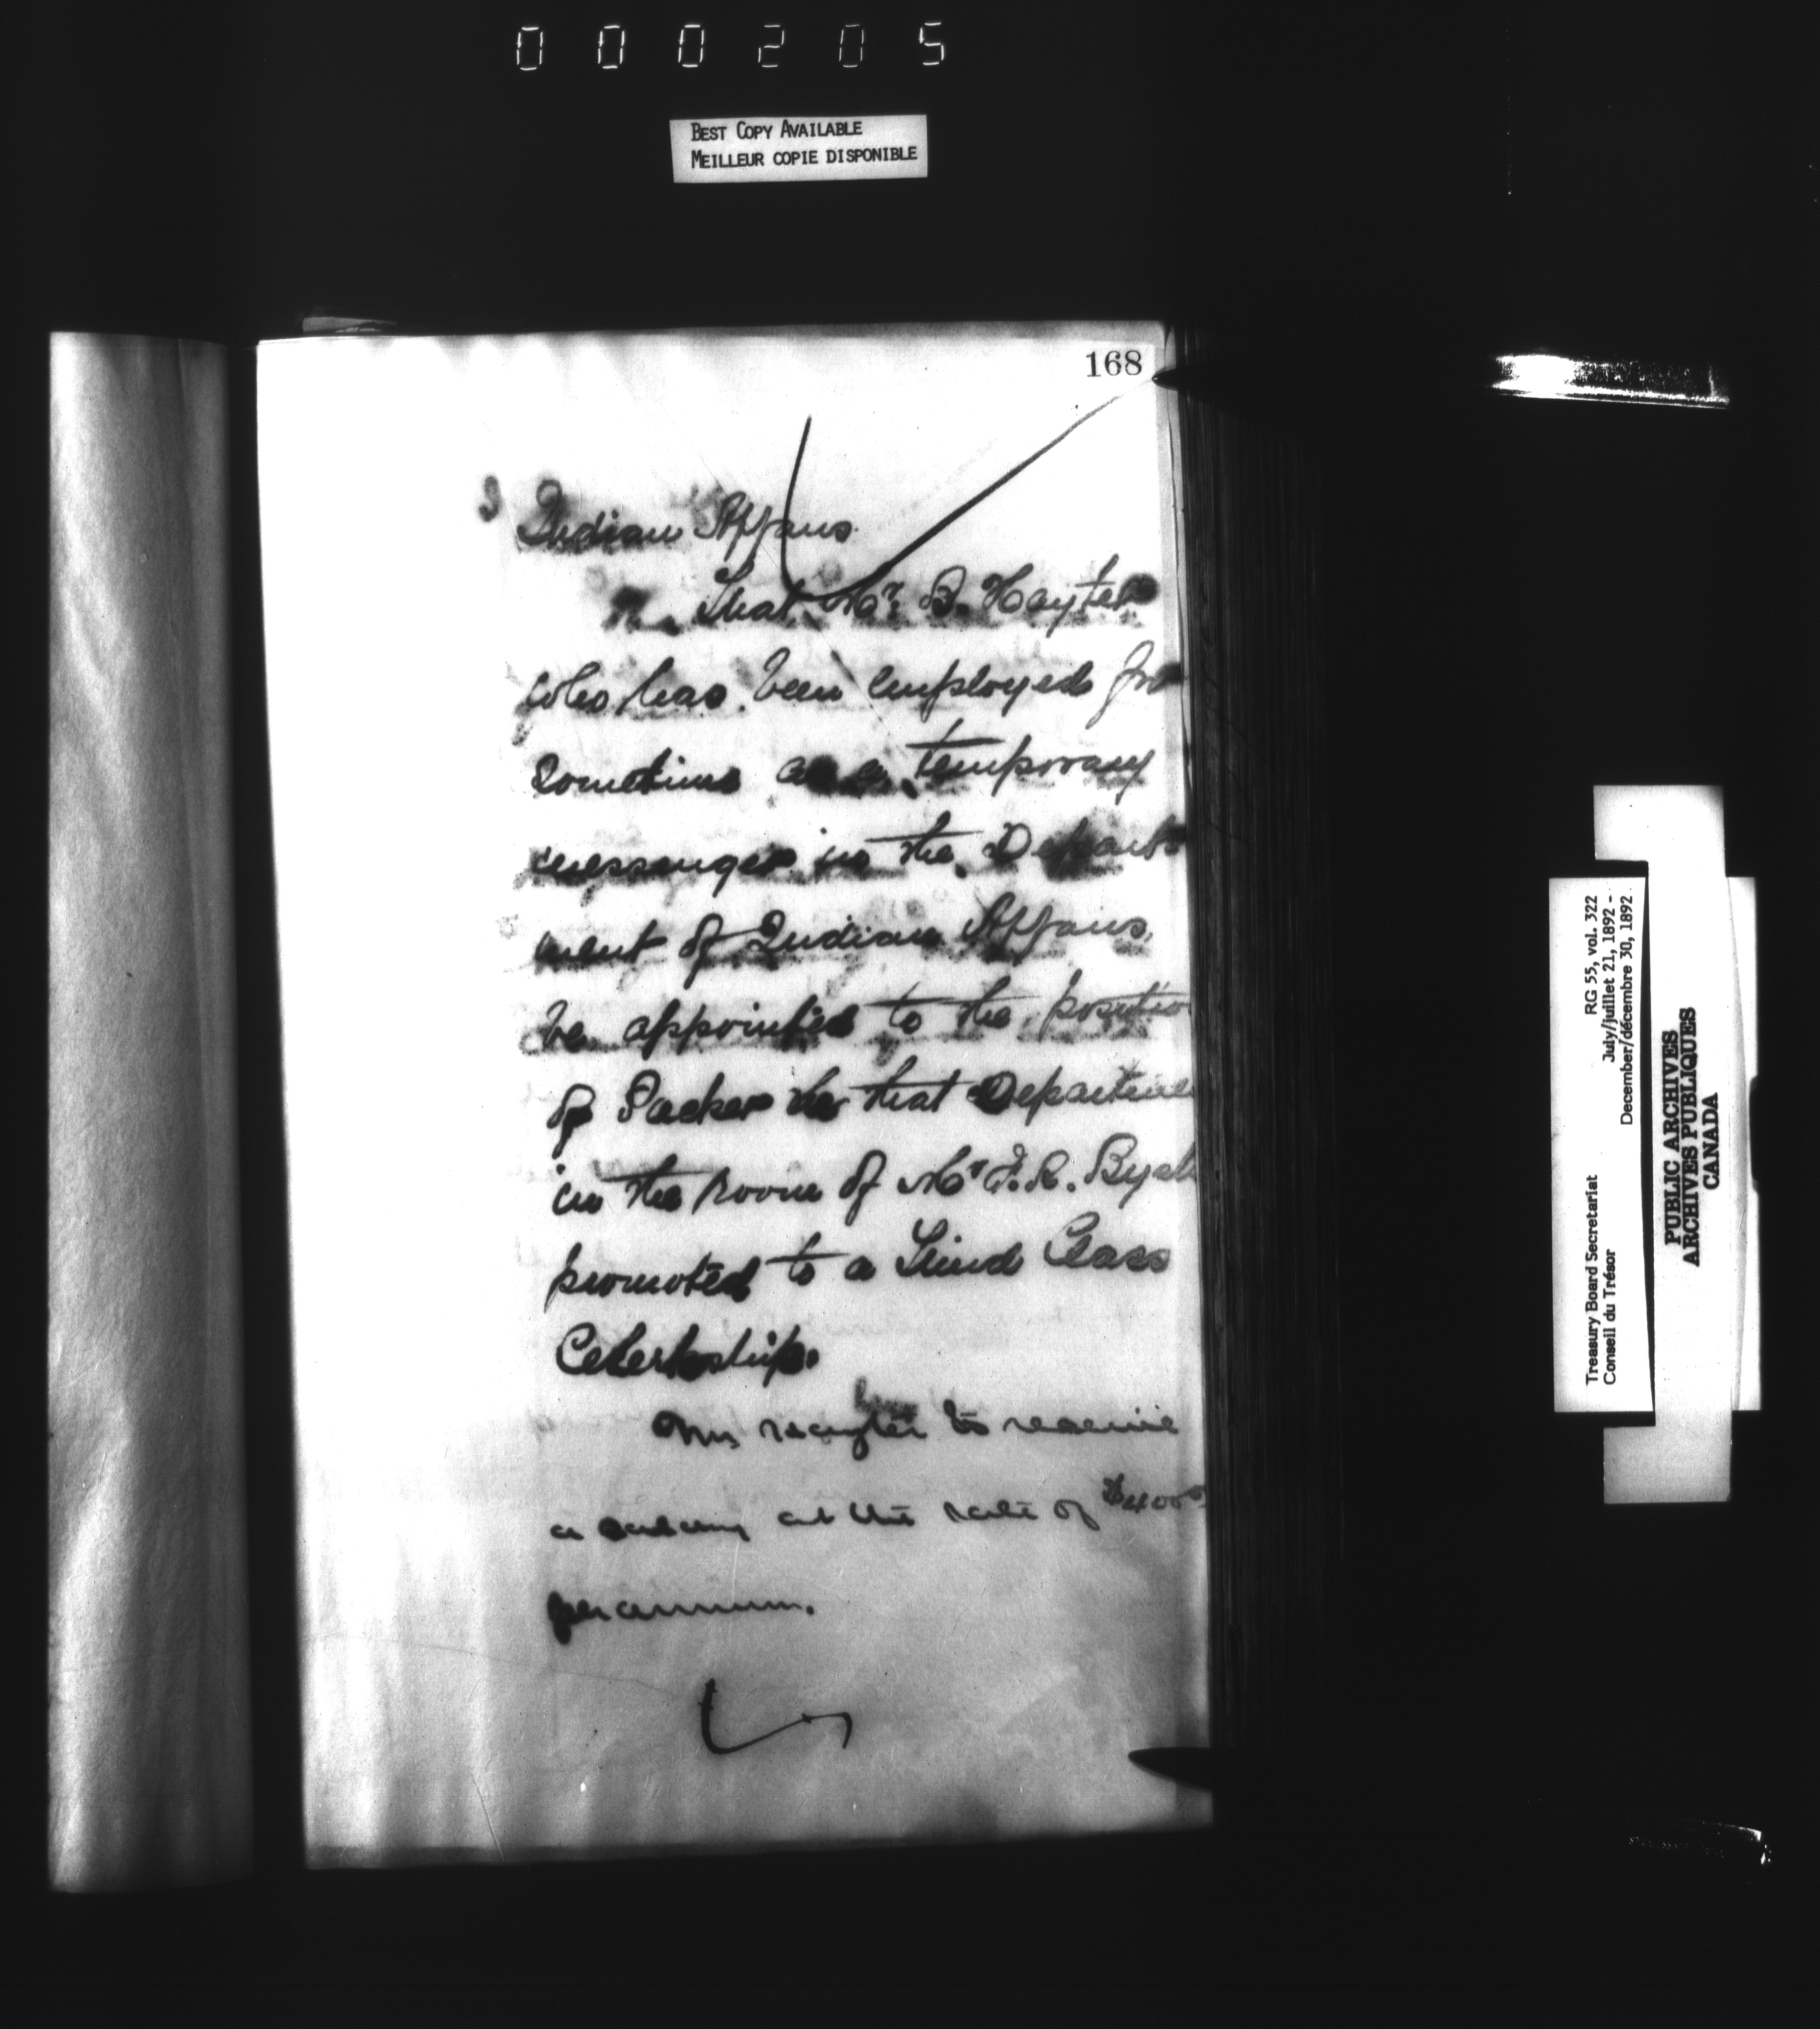 000205
BEST COPY AVAILABLE
MEILLEUR COPIE DISPONIBLE
168
Indian Affairs
That Mr. B. Hayter
who has been employed for
sometime as a temporary
messenger in the Depart-
ment of Indian Affairs,
be appointed to the positio
of Packer in that Departme
in the room of Mr F. R. Bysh
promoted to a Third Class
Clerkship.
Mr Hayter to receive
a salary at the rate of $400
per annum.
Treasury Board Secretariat RG 55, vol. 322
Conseil du Trésor July/juillet 21, 1892 -
December/décembre 30, 1892
PUBLIC ARCHIVES
ARCHIVES PUBLIQUES
CANADA